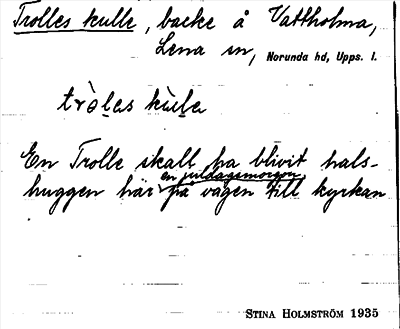 Trolles kulle, backe å Vattholma,
Lena sn, Norunda hd, Upps. l.
trὸlες kùle
En Trolle skall ha blivit hals-
huggen här en juldagsmorgon på vägen till kyrkan
STINA HOLMSTRÖM 1935